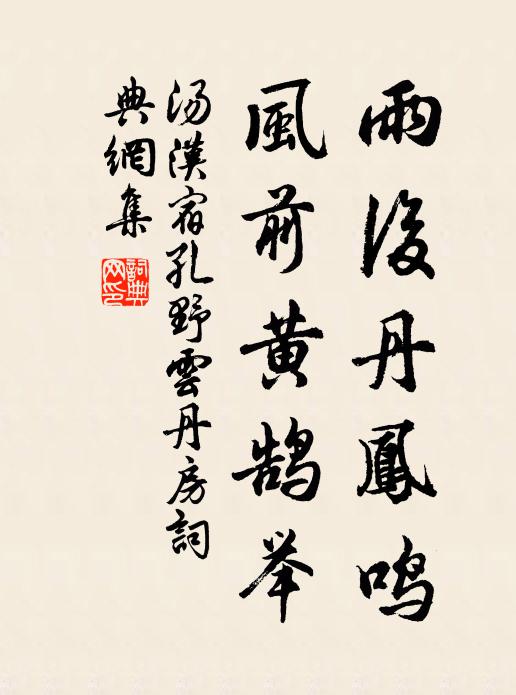 雨後丹鳳鳴
風前黄鹄举
汤漢宿孔野雲丹房詞
典網集
詞典网印